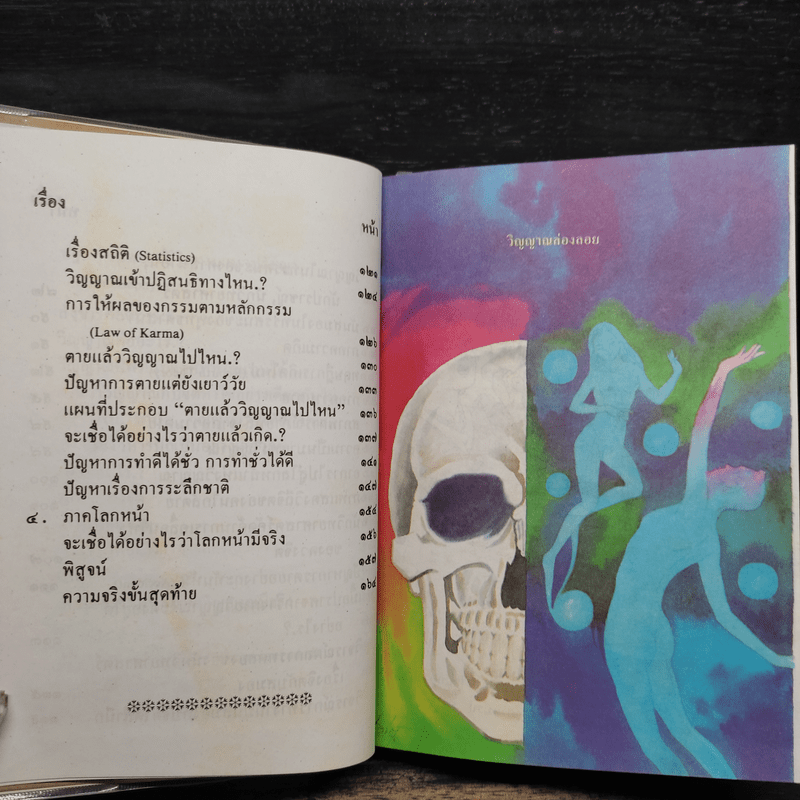 เรื่อง
หน้า
เรื่องสถิติ (Statistics) ๑๒๑
วิญญาณเข้าปฏิสนธิทางไหน.? ๑๒๔
การให้ผลของกรรมตามหลักกรรม
(Law of Karma) ๑๒๖
ตายแล้ววิญญาณไปไหน.? ๑๓๐
ปัญหาการตายแต่ยังเยาว์วัย ๑๓๓
แผนที่ประกอบ “ตายแล้ววิญญาณไปไหน” ๑๓๖
จะเชื่อได้อย่างไรว่าตายแล้วเกิด.? ๑๓๗
ปัญหาการทำดีได้ชั่ว การทำชั่วได้ดี ๑๔๑
ปัญหาเรื่องการระลึกชาติ ๑๔๗
๔. ภาคโลกหน้า ๑๕๔
จะเชื่อได้อย่างไรว่าโลกหน้ามีจริง ๑๕๖
พิสูจน์ ๑๕๗
ความจริงขั้นสุดท้าย ๑๖๔
วิญญาณล่องลอย